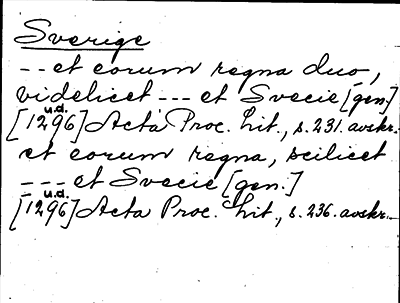 Sverige
-- et eorum regna duo,
videlicet --- et Svecie [gen.]
u.d.
[1296] Acta Proc. Lit., s. 231. avskr.
et eorum regna, scilicet
--- et Svecie [gen.]
u.d.
[1296] Acta Proc. Lit., s. 236. avskr.